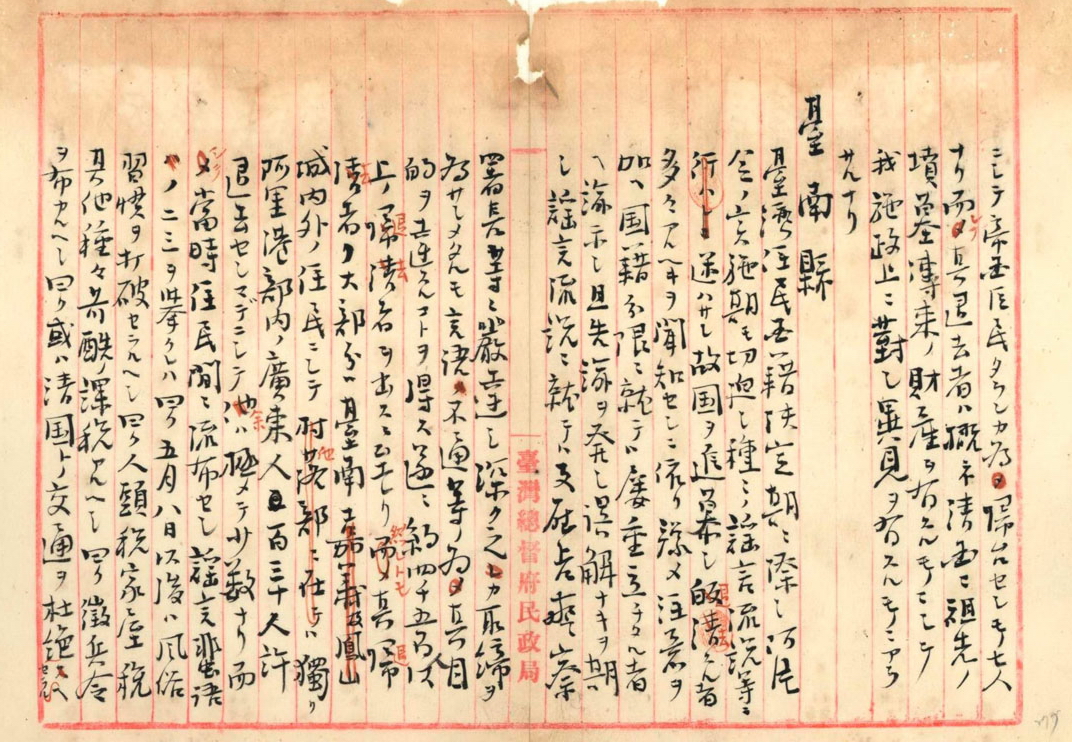 ニシテ帝国臣民タランカ為メ帰台セシモ七人
ナリ而シテ其退去者ハ概ネ清国ニ祖先ノ
墳墓傳来ノ財産ヲ有スルモノニシテ
我施政上ニ對シ異見ヲ有スルモノニアラ
サルナリ
臺南縣
臺湾住民国籍決定期ニ際シ阿片
令ノ実施期モ切迫シ種々ノ謡言流説等ニ
迷ハサレ故国ヲ追慕シ退清スル者
多々アルヘキヲ聞知セシニ依リ深メ注意ヲ
加ヘ国籍分限ニ就テハ屡重立チタル者
ヘ諭示シ且先諭ヲ発シ誤解ナキヲ期シ
謡言流説ニ就テハ支庁長弁務
署長等ニ厳達シ深ク之レカ取締ヲ
為サシメタルモ言語ノ不通等ノ為メ其目
的ヲ達スルコトヲ得ス遂ニ約四千五百人以
上ノ退去者ヲ出スニ至レリ而シテ其退
去者ノ大部分ハ臺南嘉義鳳山
城内外ノ住民ニシテ他ノ部ニ在テハ獨リ
阿里港部内ノ廣東人百三十人許
退去セシマデニシテ余ハ極メテ少数ナリ而
シテ當時住民間ニ流布セシ謡言蜚語
ノ二三ヲ挙クレハ曰ク五月八日以後ハ風俗
習慣ヲ打破セラルヘシ曰ク人頭税家屋税
其他種々苛酷ノ課税アルヘシ曰ク徴兵令
ヲ布カルヘシ曰ク或ハ清国トノ交通ヲ杜絶
臺灣總督府民政局